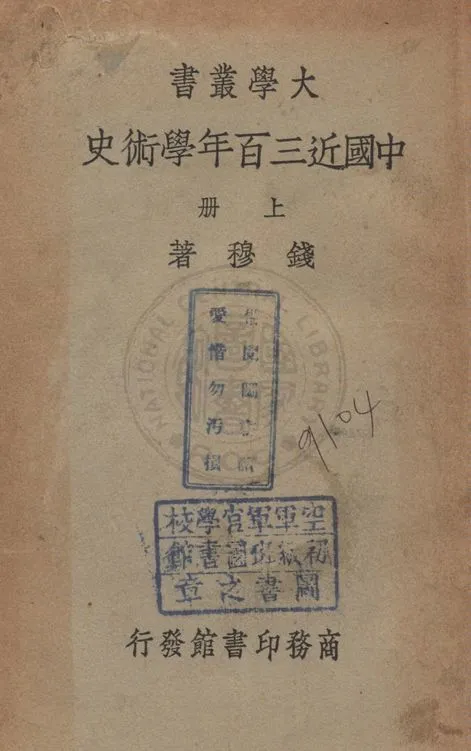 大學叢書
中國近三百年學術史
上册
錢穆著
愛惜勿污損
NATIONAL LIBRARY
9104
空軍軍官學校
初級班圖書館
圖書之章
商務印書館發行